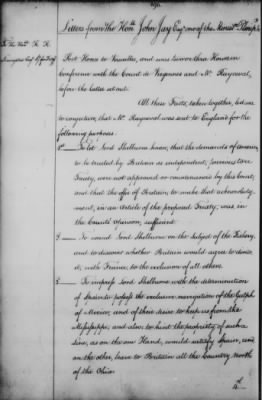 Letters from the Hon.ble John Jay Esq. one of the
To the Hon. R. R.
Livingston Esq.
Post Horse to Versailles, and was two or three Hours in
Conference with the Count de Vergennes and Mr. Rayneval,
before the latter set out.
All these Facts, taken together, led me
to conjecture, that Mr. Rayneval was sent to England for the
following purposes.
1st To let Lord Shelburne know, that the demands of America,
to be treated by Britain as independent, previous to a
Treaty, were not approved or countenanced by this Court;
and that the offer of Britain to make that acknowledg-
ment, in an Article of the proposed Treaty, was in
the Count's opinion, sufficient.
2 To sound Lord Shelburne on the subject of the Fishery,
and to discover whether Britain would agree to divide
it, with France, to the exclusion of all others.
3 To impress Lord Shelburne with the determination
of Spain to possess the exclusive navigation of the Gulph
of Mexico, and of their desire to keep us from the
Mississippi; and also to hint the propriety of such a
line, as on the one Hand, would satisfy Spain, and
on the other, leave to Britain all the Country north
of the Ohio.